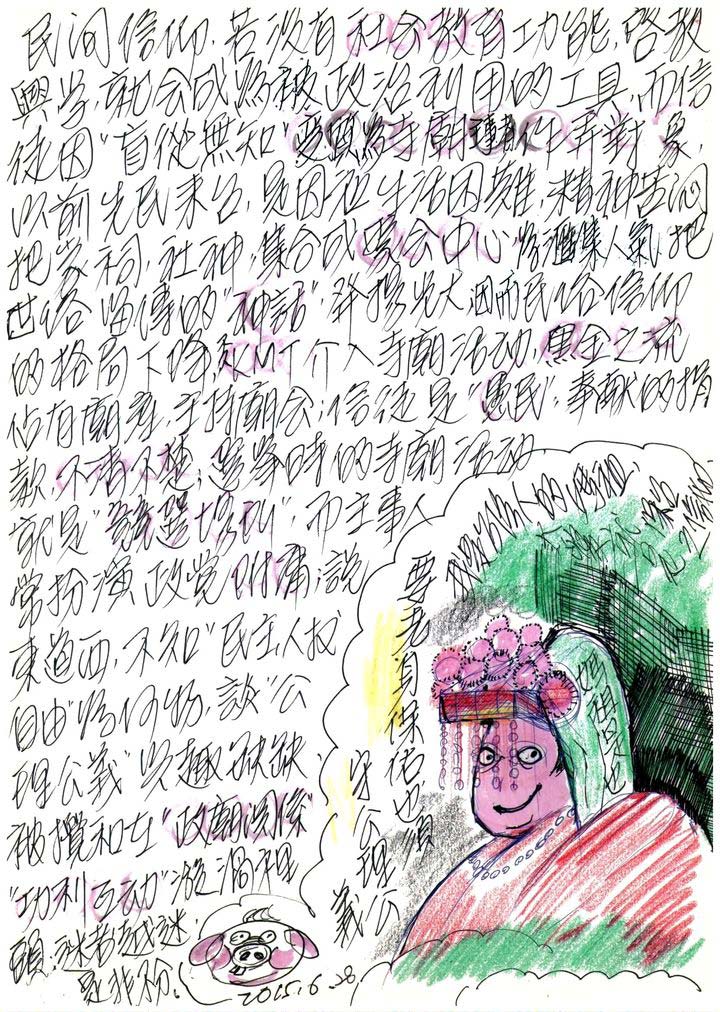 民间信仰,若没有社会教育工功能,啓教
興学,就会成為被政治利用的工具,而信
徒因"盲從無知"變為寺廟弄對象,
以前先民来台,是因在生活困難,精神苦闷
把家祠,社神,集合成聚会中心為滙集人氣,把
世俗留傳的"神話",發揚光大,因而民俗信仰
的格局下降,介入寺廟活动,黑金之流
佔有廟產,主持廟会,信徒是"愚民",奉献的捐
款,不清不楚,選举時的寺廟活动
就是"競選場所",而主事人
常扮演政党附庸,說
東道西,不知"民主,人权
自由"為何物,談"公
理公義"興趣缺缺,
被攪和在"政廟関係"
"功利互动"漩渦裡
頭,迷者越迷,
是非不分。
2015.6.28
要老身保佑也須
守公理公
義